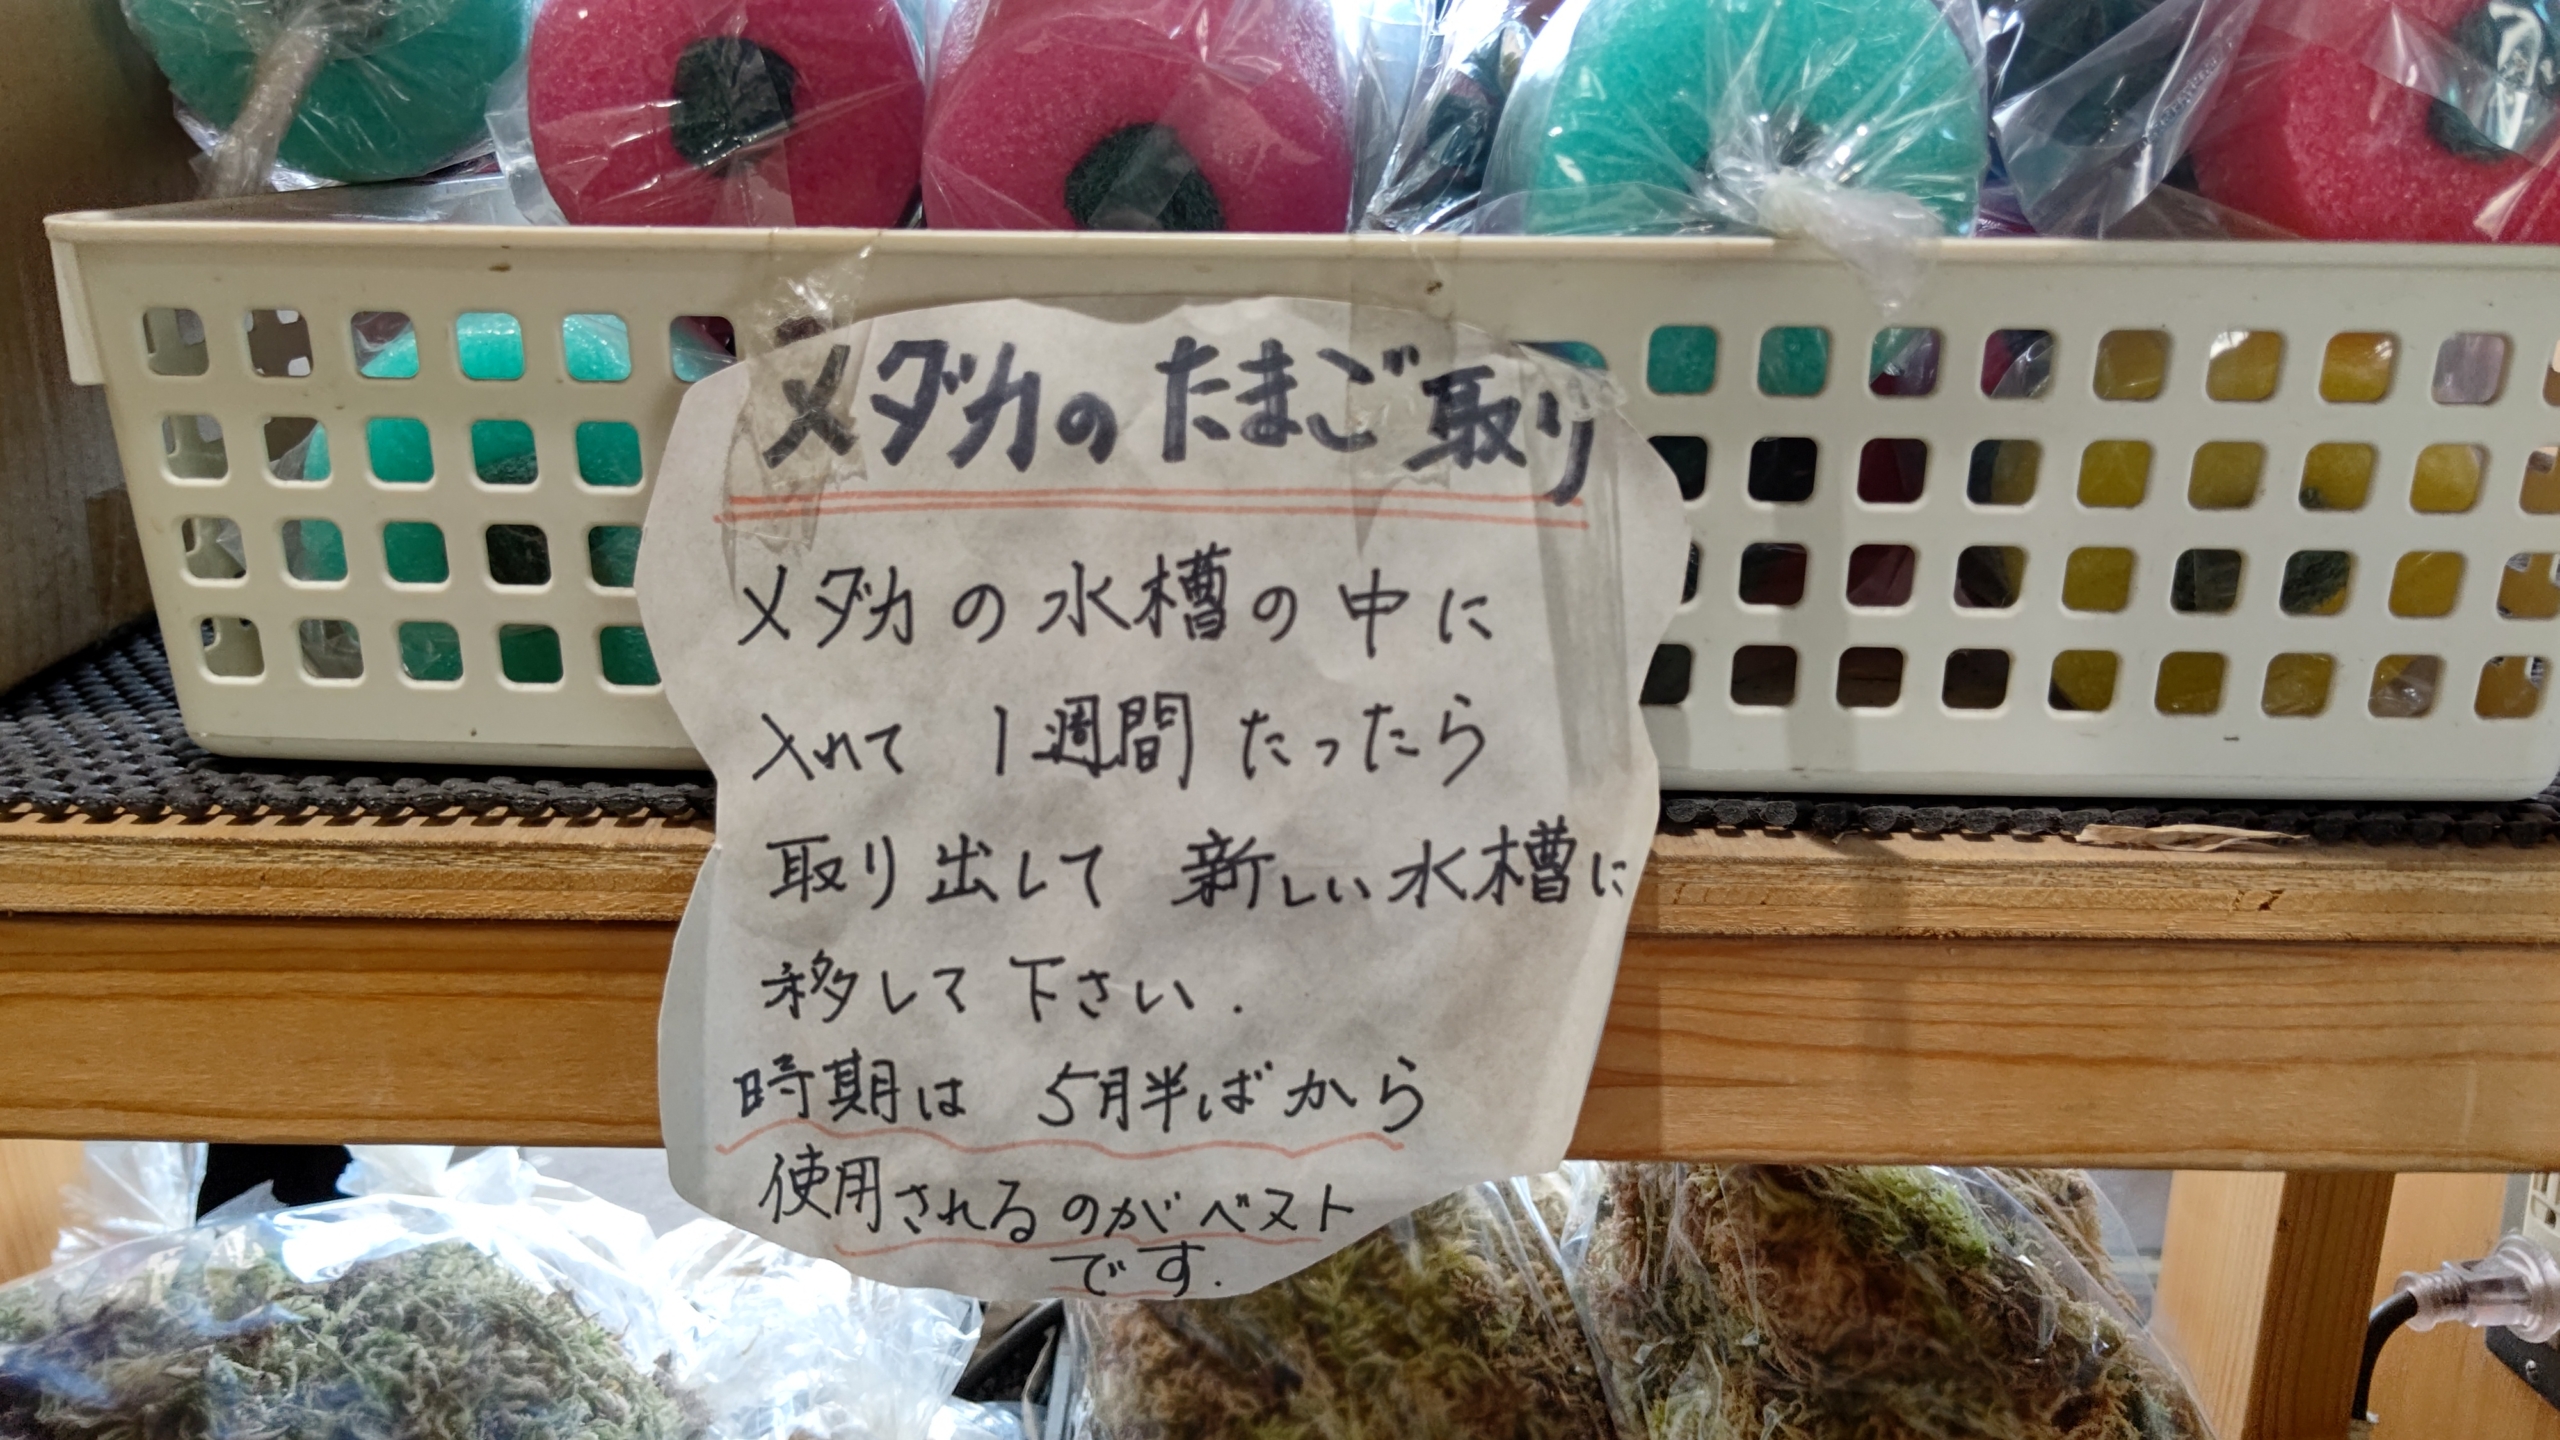 メダカのたまご取り
メダカの水槽の中に
入れて 1週間たったら
取り出して 新しい水槽に
移して下さい.
時期は 5月半ばから
使用されるのがベスト
です.